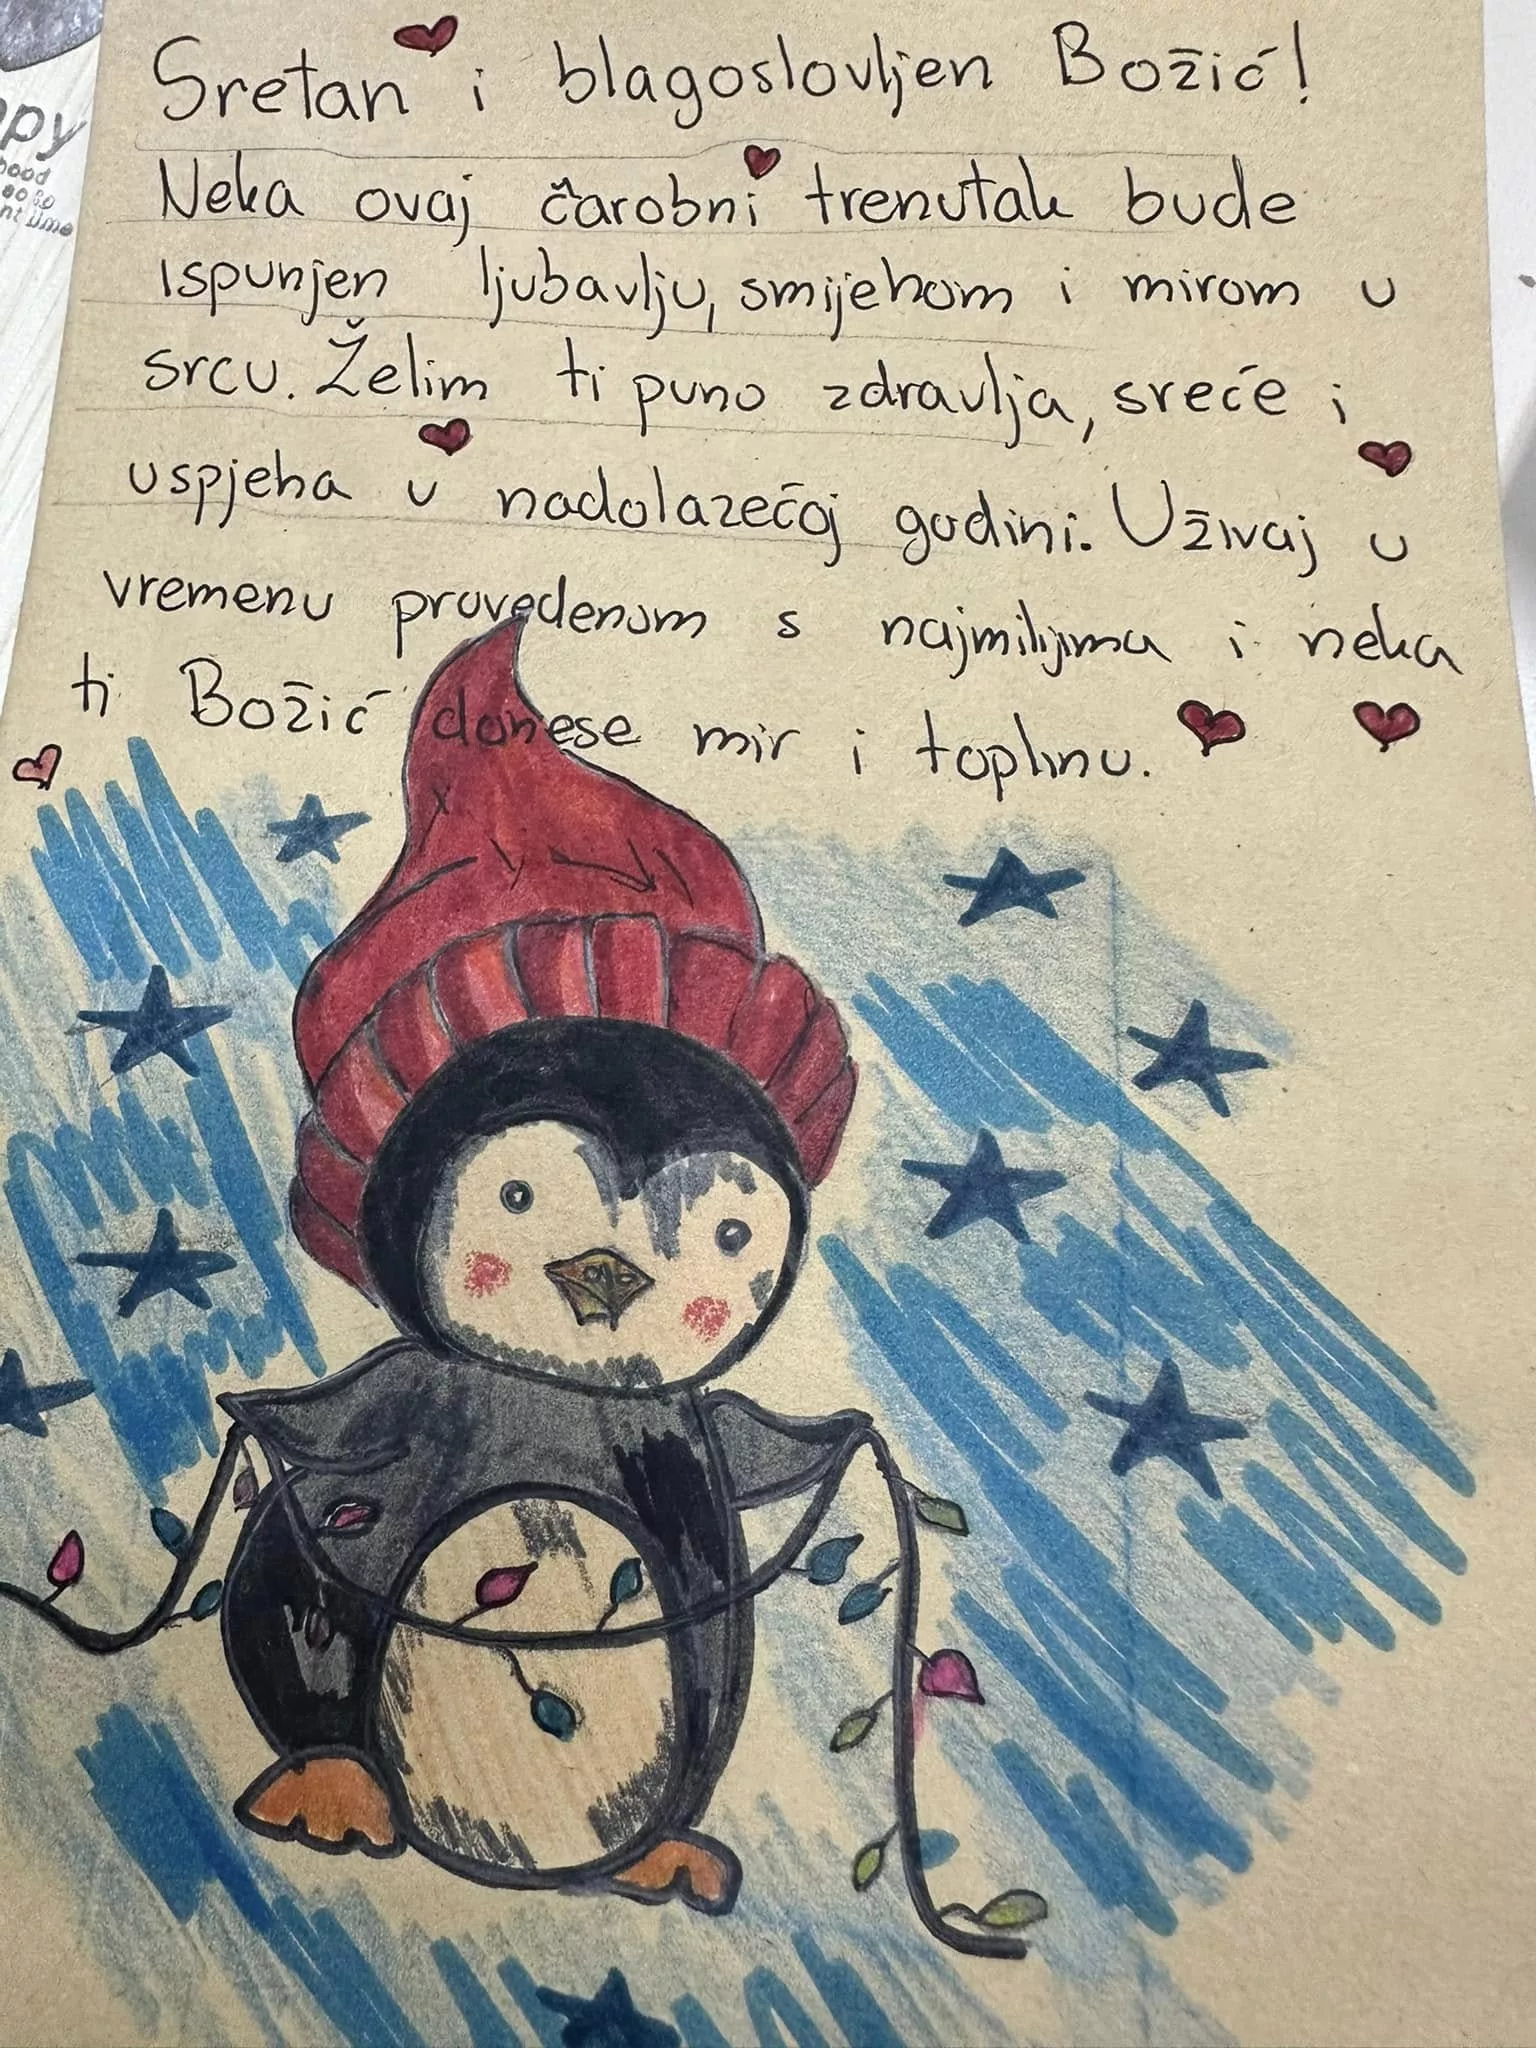 Sretan i blagoslovljen Božić!
Neka ovaj čarobni trenutak bude
ispunjen ljubavlju, smijehom i mirom u
srcu. Želim ti puno zdravlja, sreće i
uspjeha u nadolazećoj godini. Uživaj u
vremenu provedenom s najmilijima i neka
ti Božić donese mir i toplinu.
ppy
hood